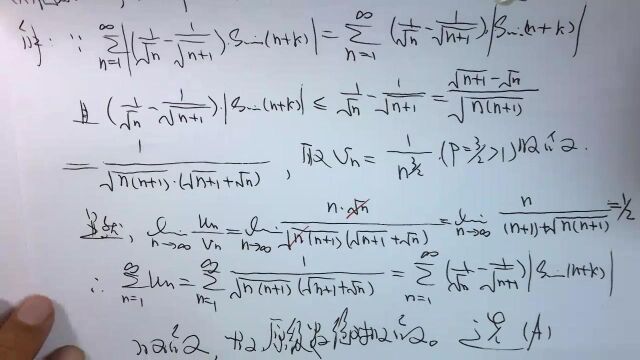 解: ∵ ∑_{n=1}^{∞} |(1/√n - 1/√(n+1)) Sin(n+k)| = ∑_{n=1}^{∞} (1/√n - 1/√(n+1)) |Sin(n+k)|
且 (1/√n - 1/√(n+1)) · |Sin(n+k)| ≤ 1/√n - 1/√(n+1) = (√(n+1) - √n)/√(n(n+1))
= 1/(√(n(n+1)) · (√(n+1) + √n)), 取 Vn = 1/n^{3/2} · (P = 3/2 > 1) 收敛.
lim_{n→∞} Un/Vn = lim_{n→∞} n·√n/(√(n(n+1)) (√(n+1) + √n)) = lim_{n→∞} n/((n+1) + √(n(n+1))) = 1/2
∴ ∑_{n=1}^{∞} Un = ∑_{n=1}^{∞} 1/(√(n(n+1)) (√(n+1) + √n)) = ∑_{n=1}^{∞} (1/√n - 1/√(n+1)) |Sin(n+k)|
收敛, 故原级数绝对收敛。选 (A)